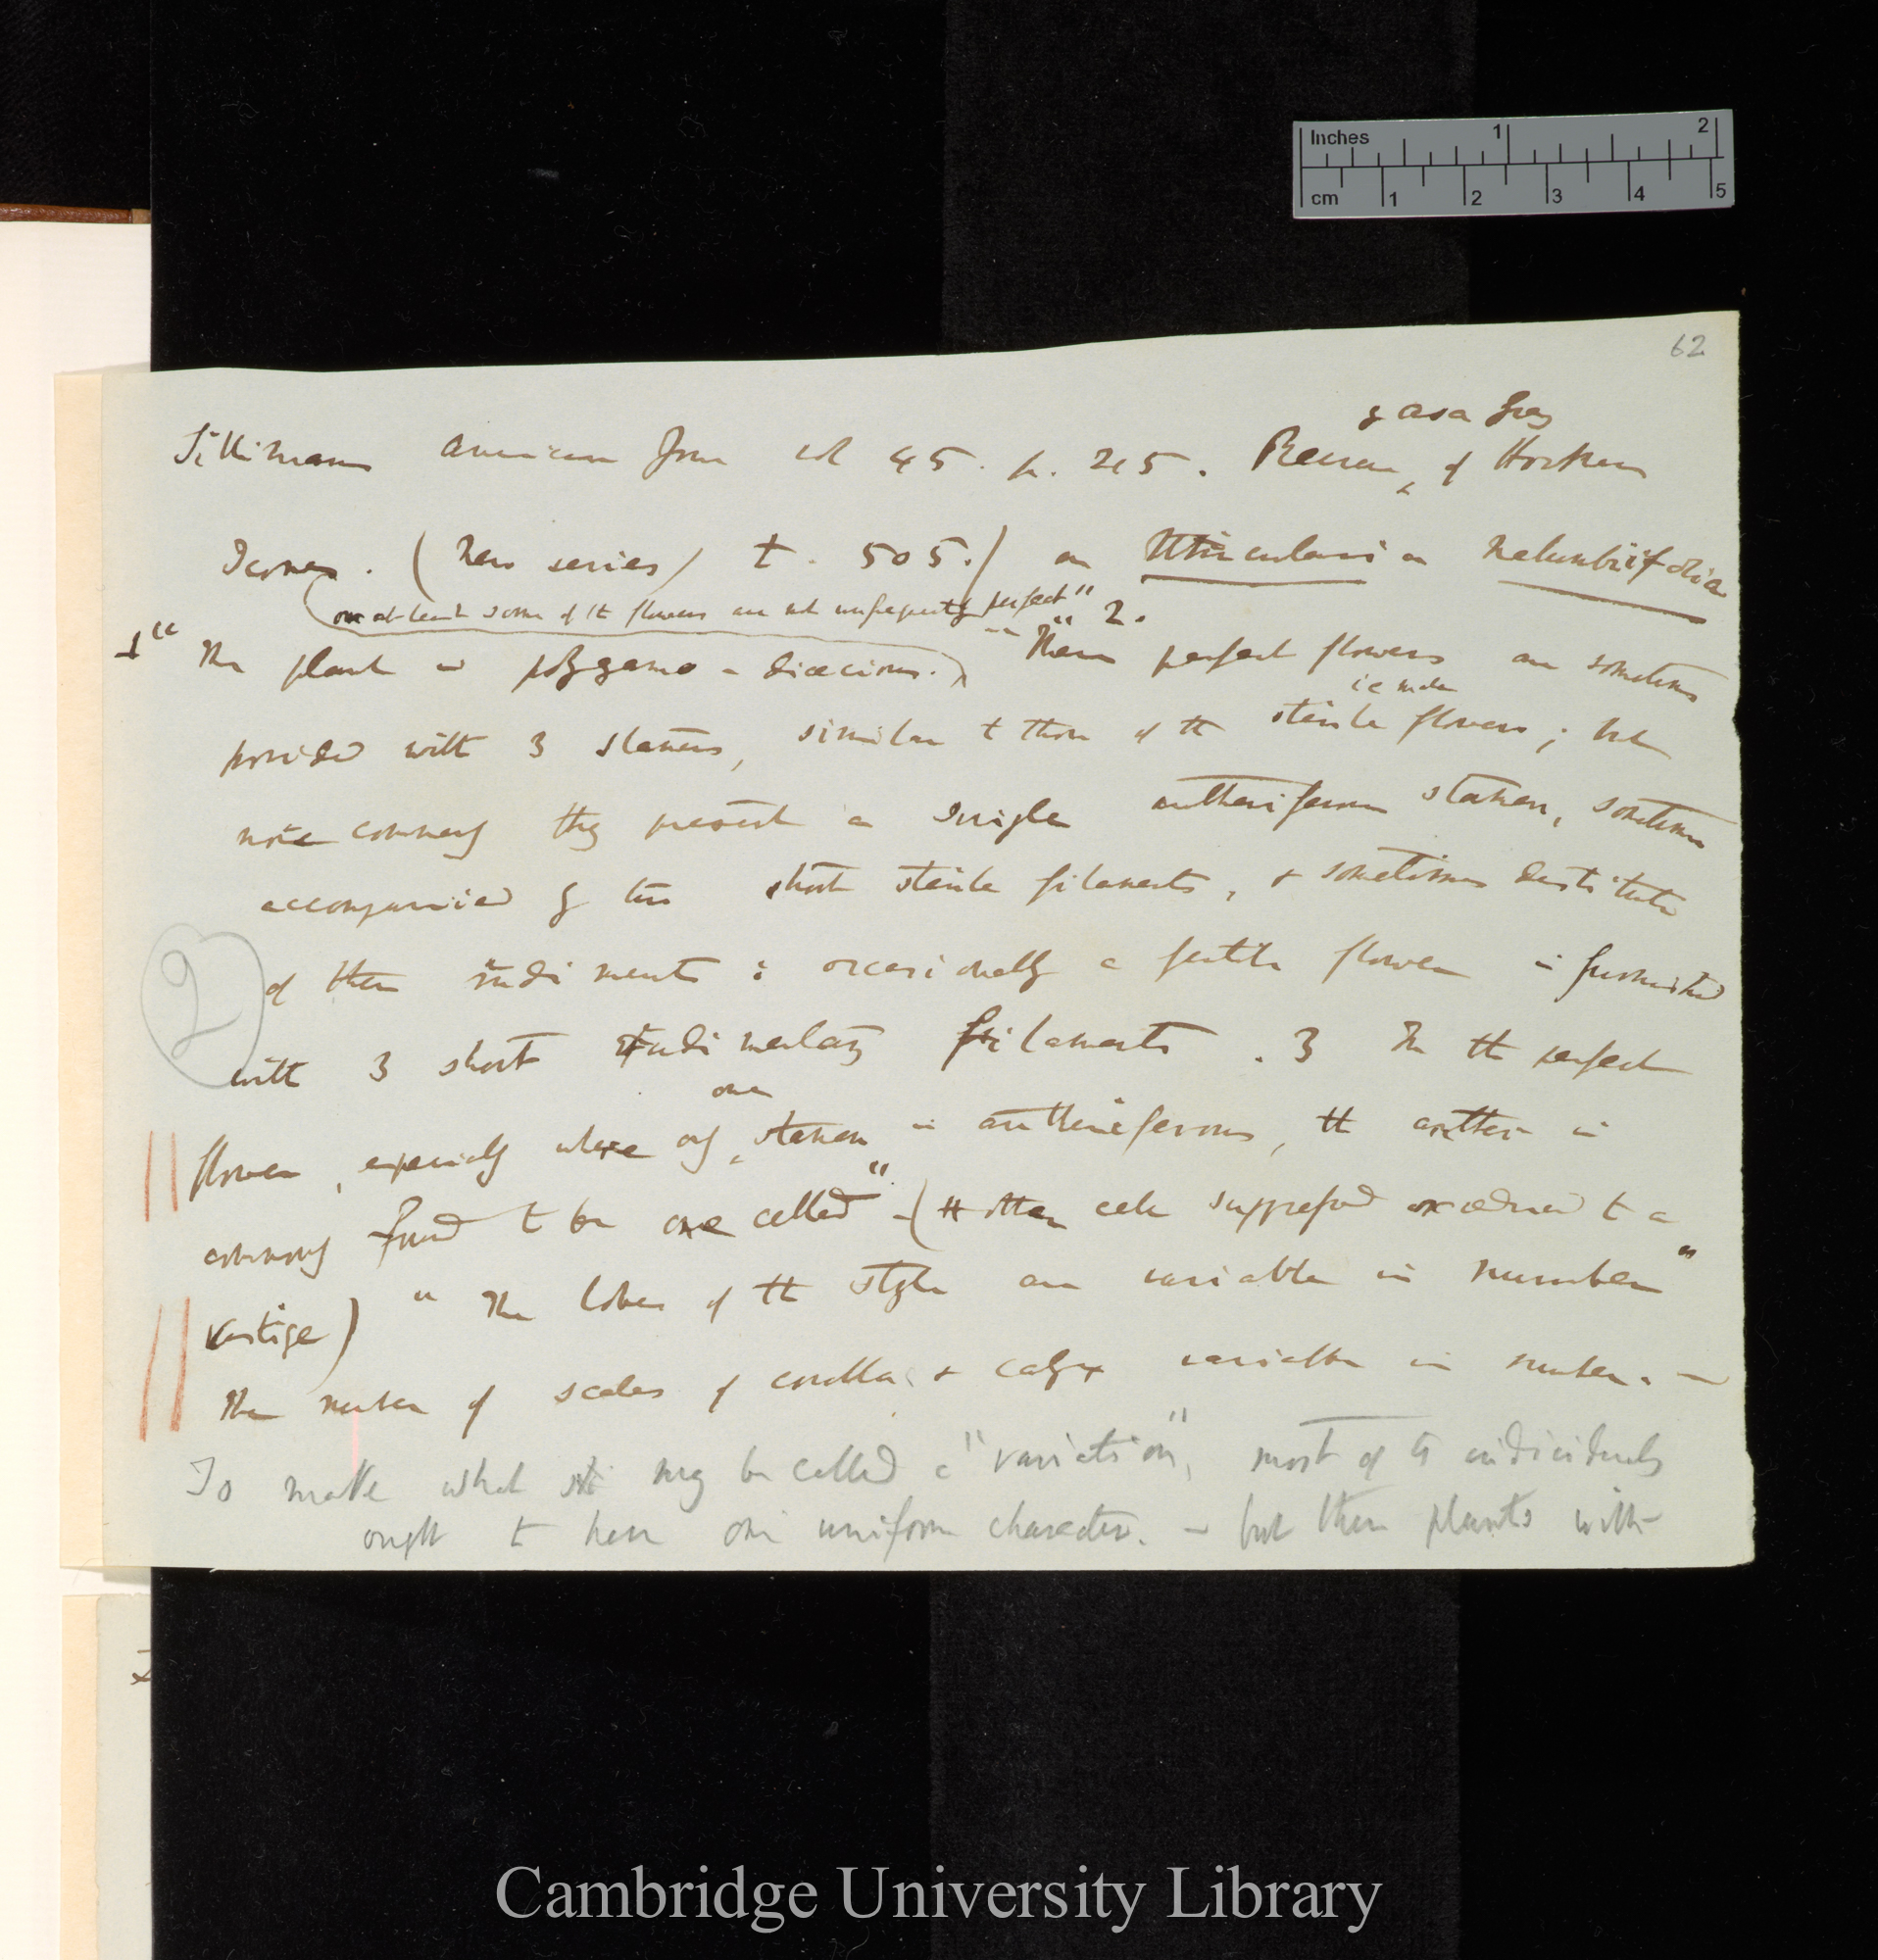 Inches 1 2
cm 1 2 3 4 5
62
by Asa Gray
Silliman American Jour vol 45. p. 215. Review of Hookers
Icones. (New series) t. 505.) on Utricularia nelumbiifolia
or at least some of the flowers are not unfrequently perfect" 2.
1 " The plant is polygamo-diœcious. "These perfect flowers are sometimes
i e male
provided with 3 stamens, similar to those of the sterile flowers; but
more commonly they present a single antheriferous stamen, sometimes
accompanied by two short sterile filaments, & sometimes destitute
of these rudiments: occasionally a fertile flower is furnished
2
with 3 short rudimentary filaments. 3 In the perfect
one
flower, especially where only stamen is antheriferous, the anther is
commonly found to be one celled" - (the other cell suppressed or reduced to a
vestige) " The lobes of the style are variable in number"
The number of scales of corolla & calyx variable in number. —
To make what may be called a "variation", most of the individuals
ought to have one uniform character. — but these plants with
Cambridge University Library